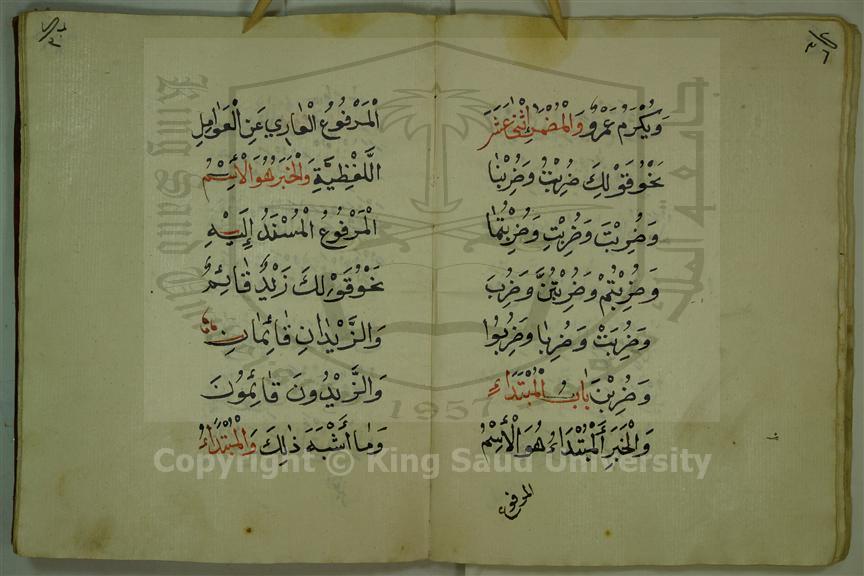 وَيُكْرَمُ عَمْرٌو وَالْمُضْمَرُ اثْنٰى عَشَرَ
نَحْوُ قَوْلِكَ ضُرِبْتُ وَضُرِبْنَا
وَضُرِبْتَ وَضُرِبْتِ وَضُرِبْتُمَا
وَضُرِبْتُمْ وَضُرِبْتُنَّ وَضُرِبَ
وَضُرِبَتْ وَضُرِبَا وَضُرِبُوا
وَضُرِبْنَ بَابُ الْمُبْتَدَاءِ
وَالْخَبَرِ اَلْمُبْتَدَاءُ هُوَ الْاِسْمُ
المرفوع
الْمَرْفُوعُ الْعَارِي عَنِ الْعَوَامِلِ
اللَّفْظِيَّةِ وَالْخَبَرُ هُوَ الْأِسْمُ
الْمَرْفُوعُ الْمُسْنَدُ إِلَيْهِ
نَحْوُ قَوْلِكَ زَيْدٌ قَائِمٌ
وَالزَّيْدَانِ قَائِمَانِ
وَالزَّيْدُونَ قَائِمُونَ
وَمَا أَشْبَهَ ذٰلِكَ وَالْمُبْتَدَاءُ
جامعة الملك سعود
King Saud University
1957
Copyright © King Saud University